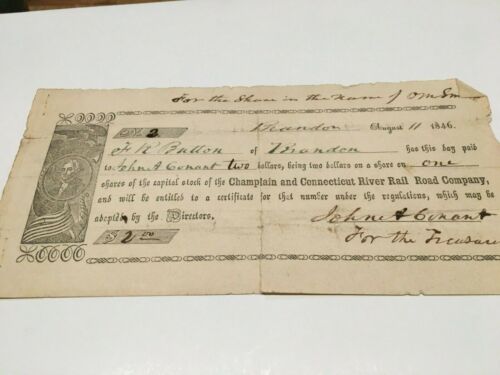 For the Share in the name of
No. 2 Brandon August 11 1846.
F. R. Button of Brandon has this day paid
to John A Conant two dollars, being two dollars on a share on one
shares of the capital stock of the Champlain and Connecticut River Rail Road Company,
and will be entitled to a certificate for that number under the regulations, which may be
adopted by the Directors.
John A Conant
$ 2 00
For the Treasure